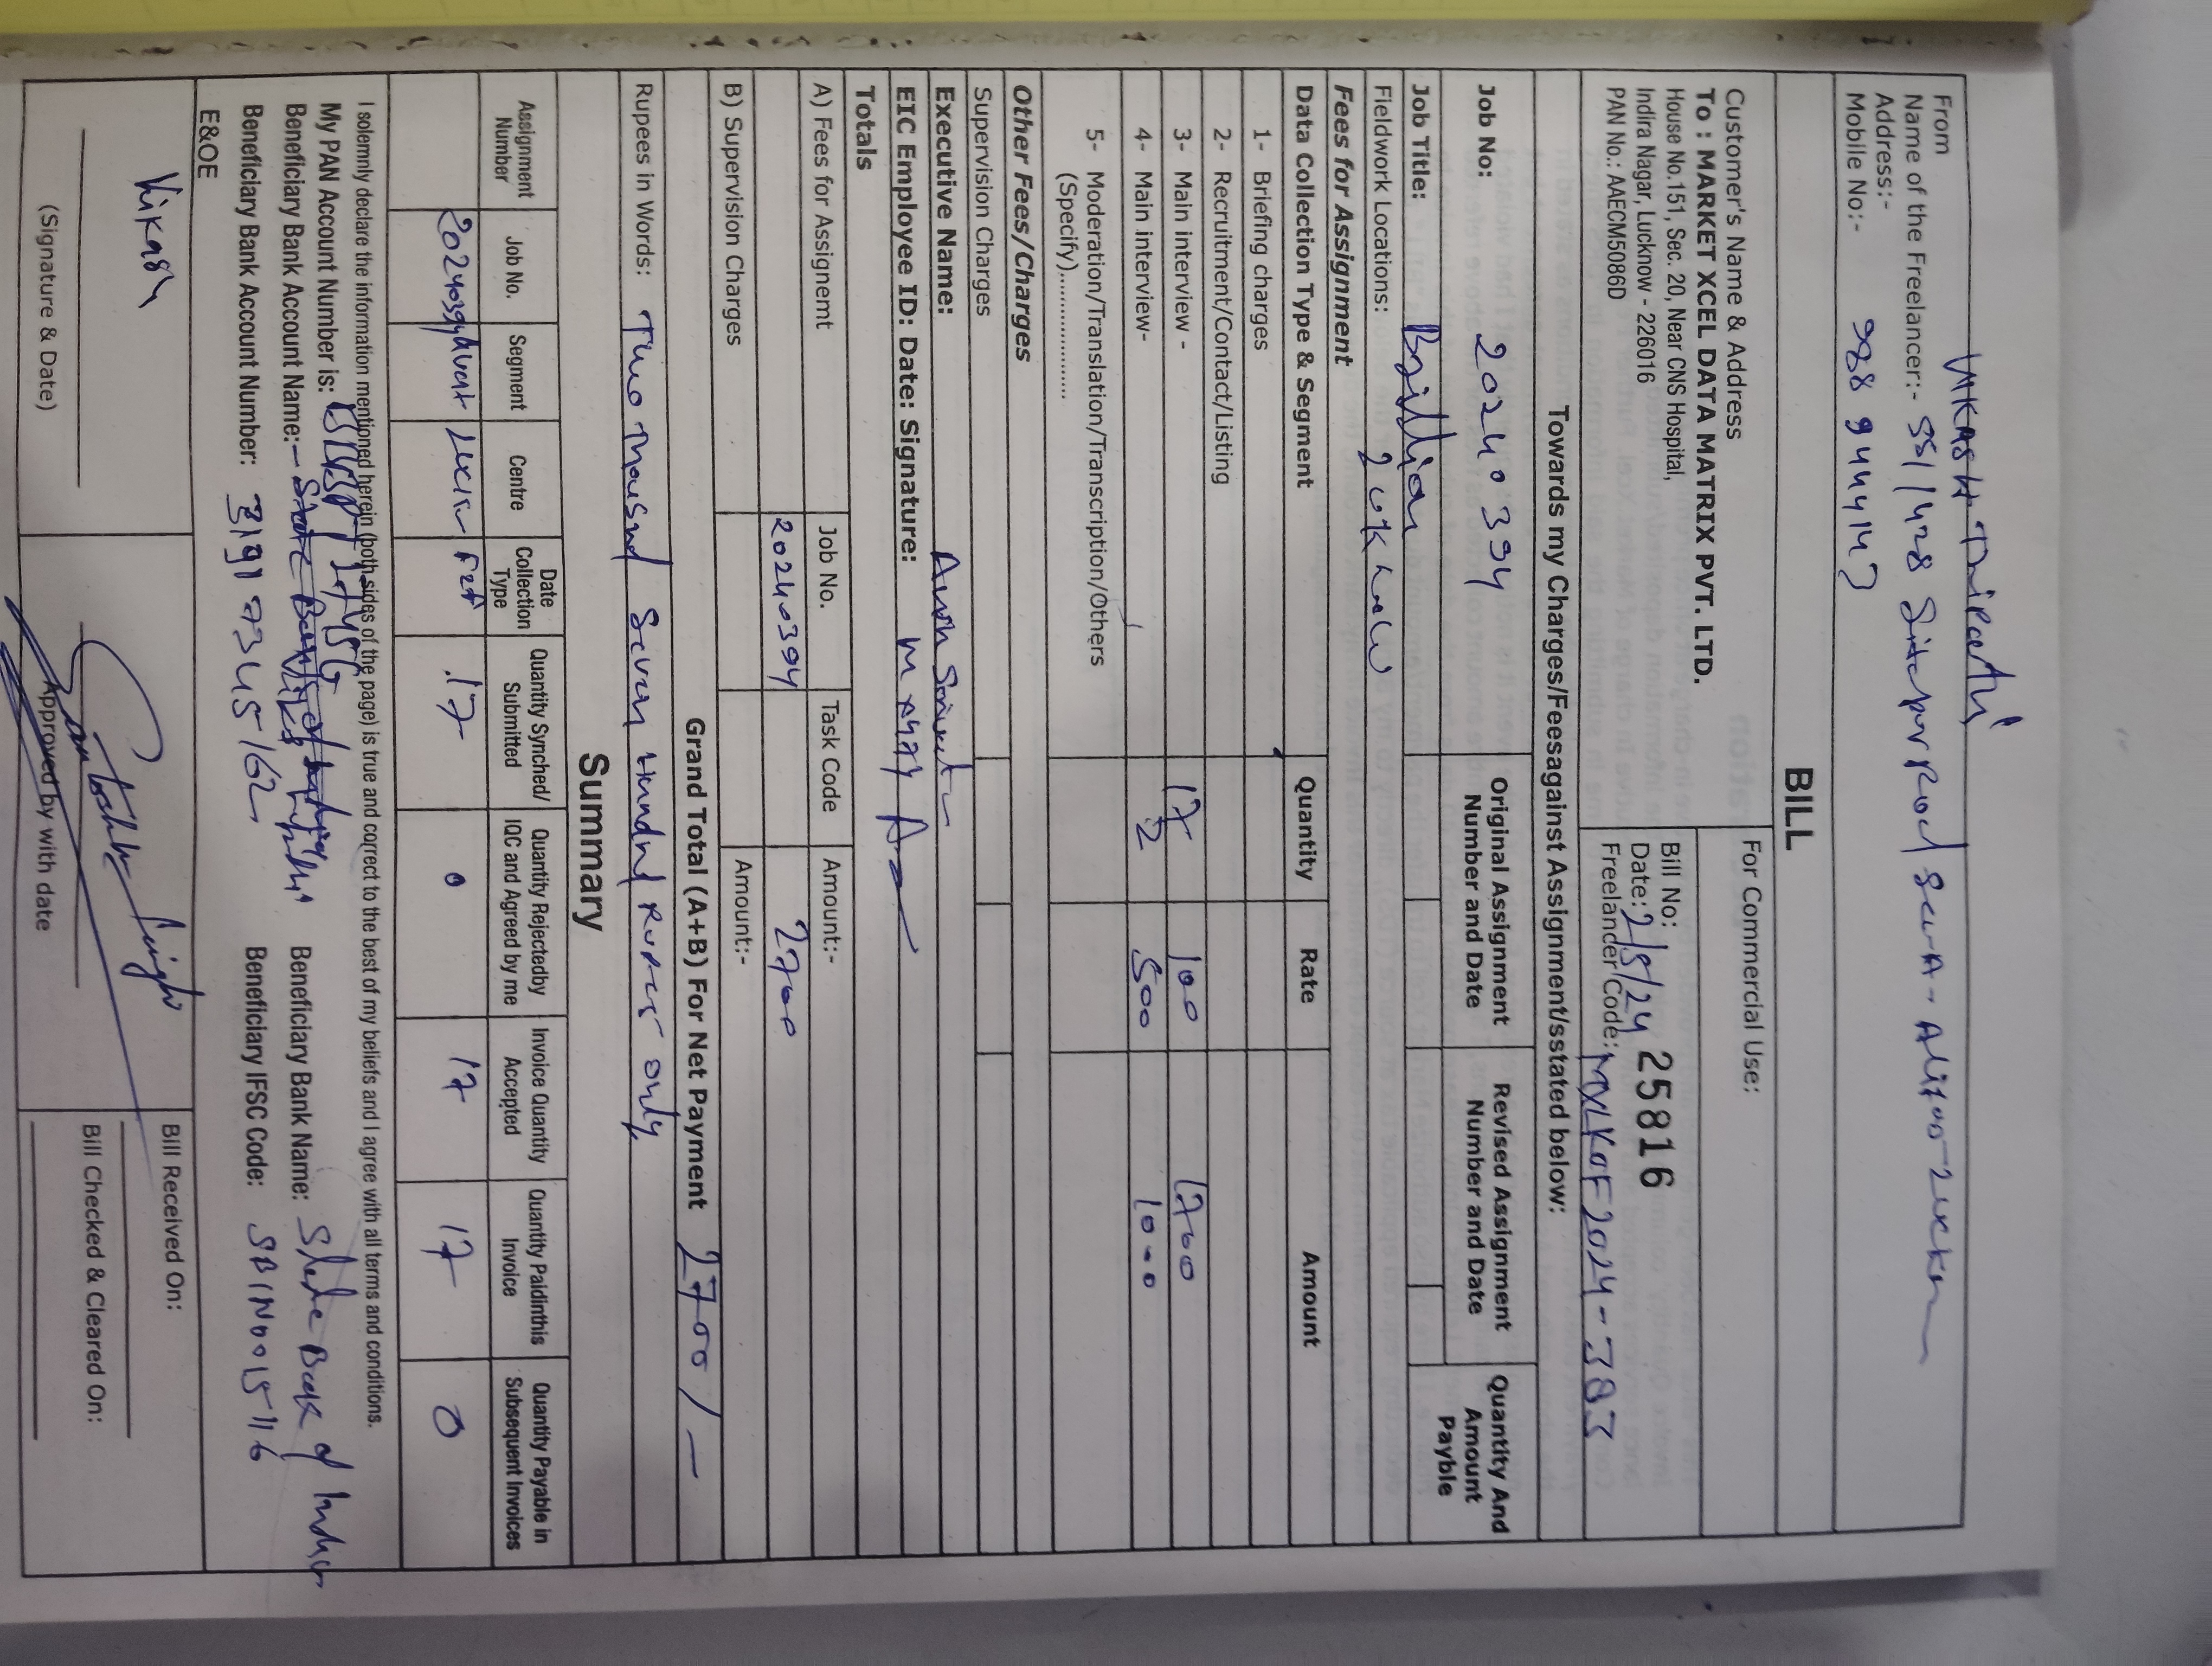 From
Vikash Tripathi
Name of the Freelancer:- 551/428 Sitapur Road
Address:-
Mobile No:- 988 944147
BILL
Customer's Name & Address
To : MARKET XCEL DATA MATRIX PVT. LTD.
House No.151, Sec. 20, Near CNS Hospital,
Indira Nagar, Lucknow - 226016
PAN No.: AAECM5086D
For Commercial Use:
Bill No: 25816
Date: 2/8/24
Freelander Code:
Towards my Charges/Feesagainst Assignment/sstated below:
Job No: 20240394
Original Assignment Number and Date
Revised Assignment Number and Date
Quantity And Amount Payble
Job Title: Brillion
Fieldwork Locations:
Fees for Assignment
Data Collection Type & Segment Quantity Rate Amount
1- Briefing charges
2- Recruitment/Contact/Listing
3- Main interview - 17 100 1700
4- Main interview- 2 500 1000
5- Moderation/Translation/Transcription/Others
(Specify)..................
Other Fees/Charges
Supervision Charges
Executive Name:
EIC Employee ID: Date: Signature:
Totals
A) Fees for Assignemt Job No. Task Code Amount:-
20240394 2700
B) Supervision Charges Amount:-
Grand Total (A+B) For Net Payment 2700/-
Rupees in Words: Two Thousand Seven Hundred Rupees only
Summary
Assignment Number Job No. Segment Centre Date Collection Type Quantity Synched/ Submitted Quantity Rejectedby IQC and Agreed by me Invoice Quantity Accepted Quantity Paidinthis Invoice Quantity Payable in Subsequent Invoices
20240394 F2F 17 0 17 17 0
I solemnly declare the information mentioned herein (both sides of the page) is true and correct to the best of my beliefs and I agree with all terms and conditions.
My PAN Account Number is:
Beneficiary Bank Account Name:- Beneficiary Bank Name: State Bank of India
Beneficiary Bank Account Number: 31917345162 Beneficiary IFSC Code: SBIN0015116
E&OE
Vikash
(Signature & Date)
Santosh Singh
Approved by with date
Bill Received On:
Bill Checked & Cleared On: